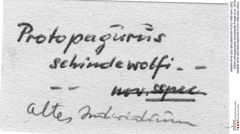 Protopagurus
schindewolfi
nov. sspec.
altes Individium